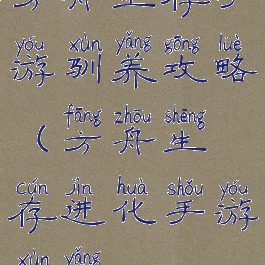 方舟生存手
yóu xùn yǎng gōng lüè
游驯养攻略
fāng zhōu shēng
（方舟生
cún jìn huà shǒu yóu
存进化手游
xùn yǎng